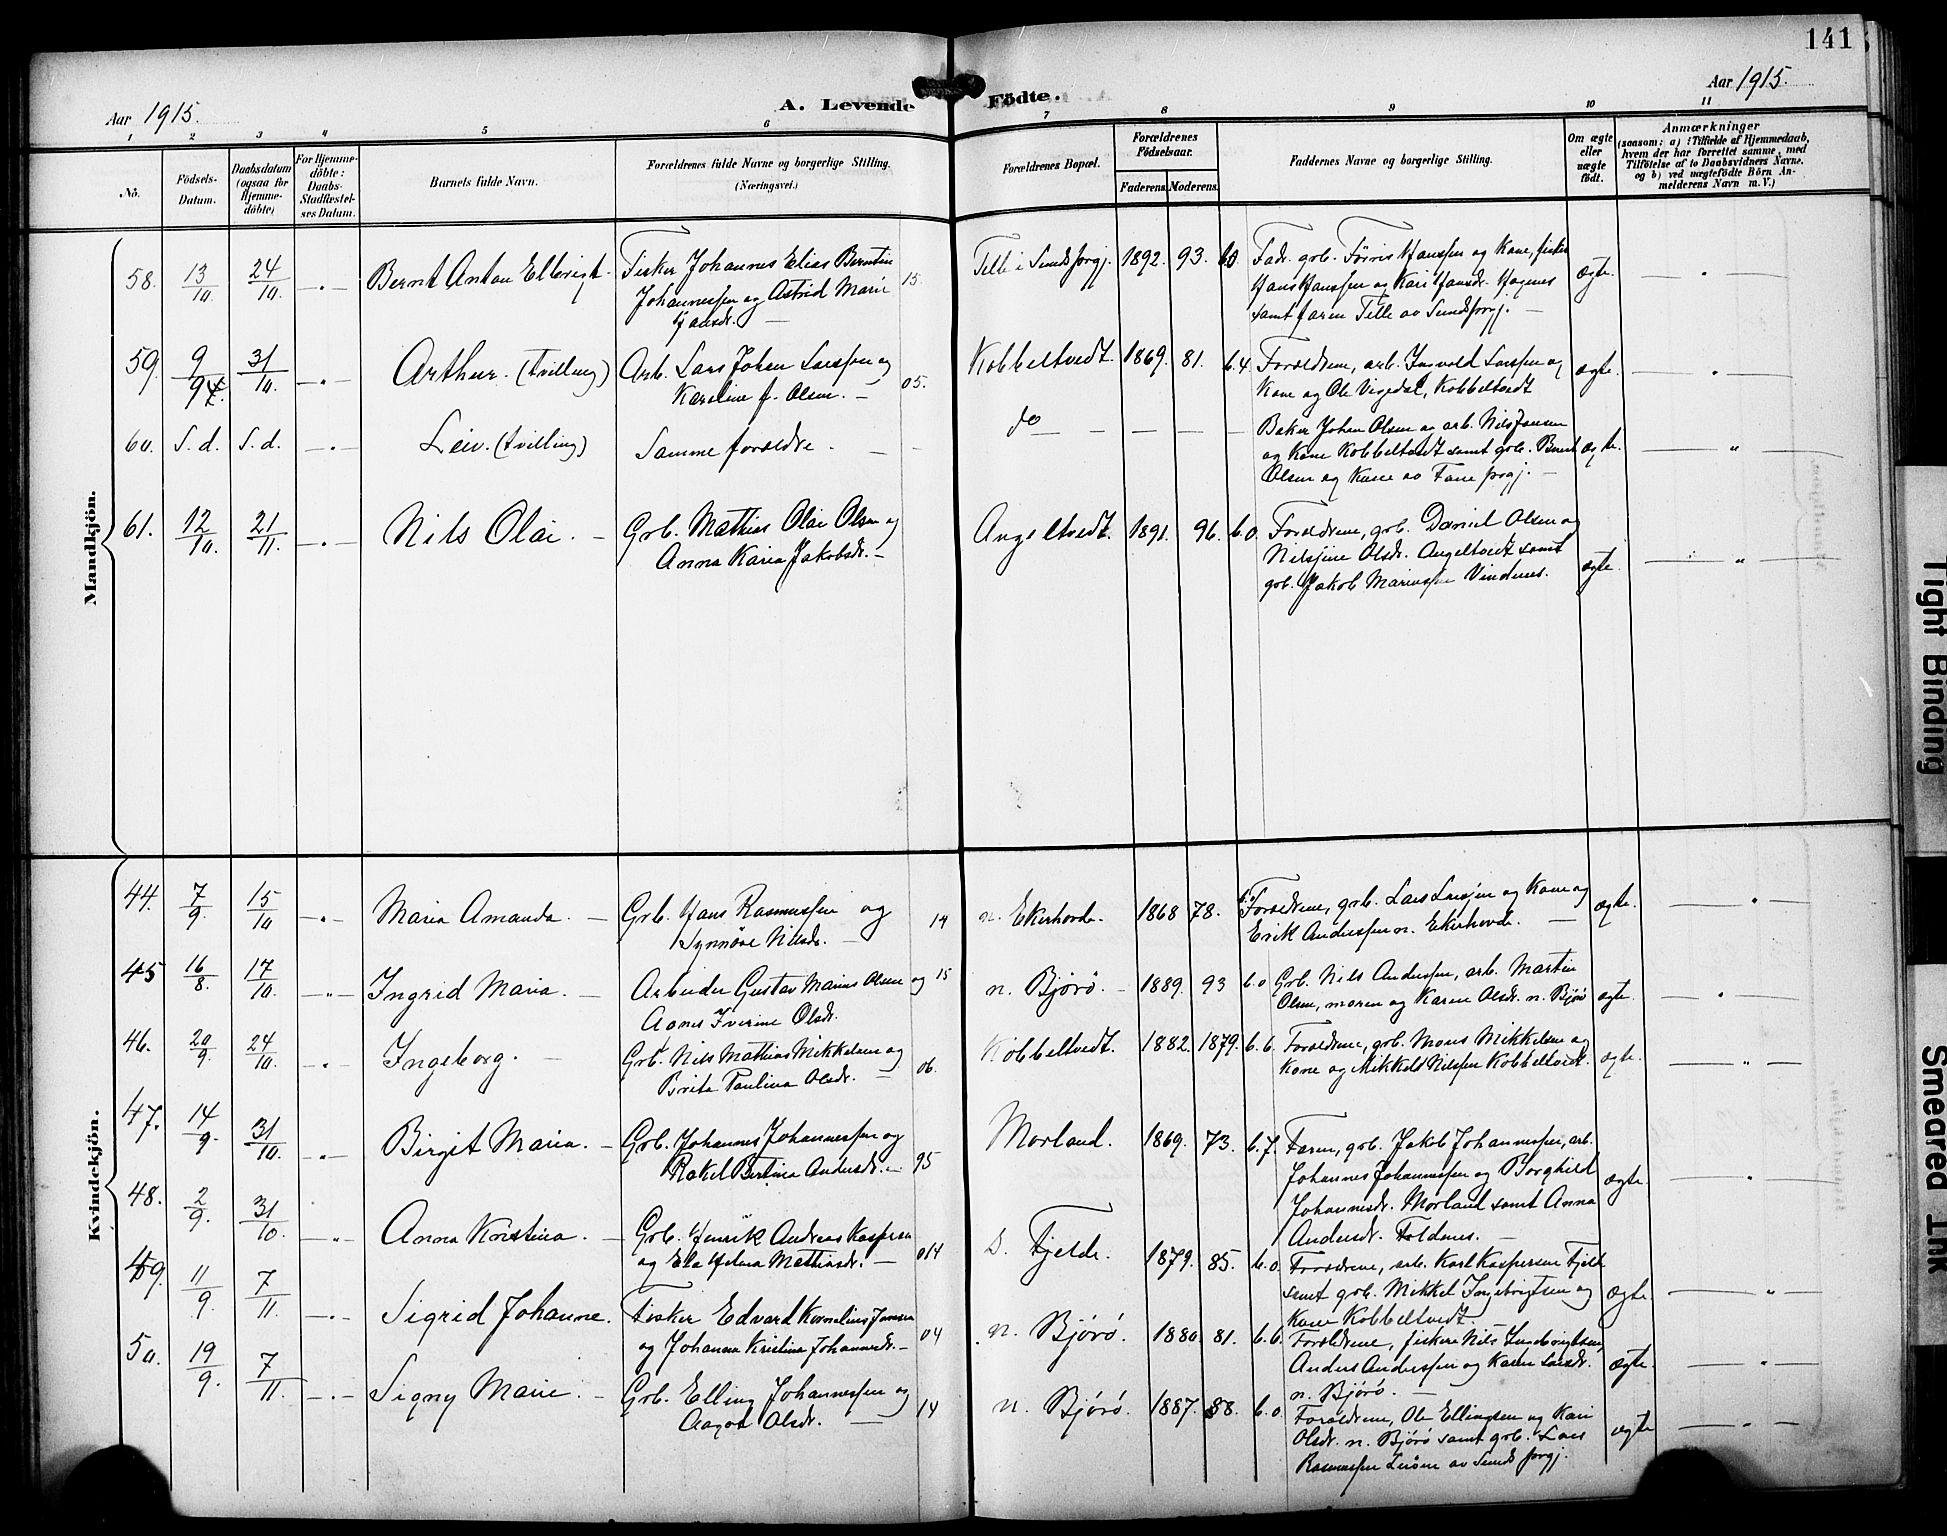 141
Aar 1915.
A. Levende Födte.
Aar 1915.
1 2 3 4 5 6 7 8 9 10 11
No.
Födsels-Datum.
Daabsdatum (ogsaa for Hjemme-döbte)
For Hjemme-döbte: Daabs-Stadfæstel-ses Datum.
Barnets fulde Navn.
Forældrenes fulde Navne og borgerlige Stilling.
(Næringsvei.)
Forældrenes Bopæl.
Forældrenes Födselsaar.
Faderens. Moderens.
Faddernes Navne og borgerlige Stilling.
Om ægte eller uægte födt.
Anmærkninger
(saasom: a) i Tilfælde af Hjemmedaab,
hvem der har forrettet samme, med
Tilföielse af to Daabsvidners Navne.
og b) ved uægtefödte Börn An-
melderens Navn m. V.)
Mandkjön.
58. 13/10 24/10. Bernt Anton Ellevigt. Fisker Johannes Elias Berntin
Johannessen og Astrid Marie
Hansdr. 15.
Telle i Sundsprgj. 1892. 93. b.0 Fadr. grb. Hanssen og Kone, fisker
Hans Hanssen og Kari Hansdr. Hagenes
samt faren Telle av Sundsprgj. ægte.
59. 9/9 31/10. Arthur. (tvilling) Arb. Lars Johan Larssen og
Karoline f. Olsen. 05.
Kobbeltvedt. 1869. 81. b.4. Forældrene, arb. Ingvald Larssen og
Kone og Ole Vegedal, Kobbeltvedt ægte.
60. S.d. S.d. Leiv. (tvilling) Samme forældre.
do
Baker Johan Olsen og arb. Nils Jansen
og Kone Kobbeltvedt samt grb. Bernt
Olsen og Kone av Fane prgj. ægte.
61. 12/10. 21/11. Nils Olai. Grb. Mathias Olai Olsen og
Anna Karia Jakobsdr.
Angeltvedt. 1891. 96. b.0. Forældrene, grb. Daniel Olsen og
Nilsine Olsdr. Angeltvedt samt
grb. Jakob Mariussen Vindenes. ægte.
Kvindekjön.
44. 7/9. 15/10 Maria Amanda. Grb. Hans Rasmussen og
Synnöve Nilsdr. 14
n. Ekerhovde. 1868 78. Forældrene, grb. Lars Larsen og Kone og
Erik Anderssen n. Ekerhovde. ægte.
45 16/8. 17/10. Ingrid Maria. Arbeider Gustav Marius Olsen og
Agnes Iverine Olsdr. 15
n. Bjørø. 1889. 93 b.0 Grb. Nils Anderssen, arb. Martin
Olsen, moren og Karen Olsdr. n. Bjørø ægte.
46. 20/9. 24/10. Ingeborg. Grb. Nils Mathias Mikkelsen og
Brita Paulina Olsdr. 06.
Kobbeltvedt. 1882. 1879. b.6. Forældrene, grb. Mons Mikkelsen og
Kone og Mikkeld Nilssen Kobbeltvedt. ægte.
47. 14/9. 31/10. Birgit Maria. Grb. Johannes Johannessen og
Rakel Bertina Andersdr. 95
Morland. 1869. 73. b.7. Faren, grb. Jakob Johannessen, arb.
Johannes Johannessen og Borghild
Johannesdr. Morland samt Anna
Andersdr. Foldenes. ægte.
48. 2/9. 31/10. Anna Kristina. Grb. Henrik Andreas Kaspersen
og Ela Helena Mathiasdr. 04
S. Fjelde. 1879. 85. b.0. Forældrene, arb. Karl Kaspersen Fjelde
samt grb. Mikkel Ingebrigtsen og
Kone Kobbeltvedt. ægte
49. 11/9. 7/11. Sigrid Johanne. Fisker Edvard Kornelius Jansen
og Johanna Kristina Johannesdr. 04
n. Bjørø. 1880. 81. b.6. Forældrene, fiskere Nils Ingebrigtsen,
Anders Anderssen og Karen Larsdr.
n. Bjørø. ægte.
50. 19/9. 7/11. Signy Marie. Grb. Elling Johannessen og
Aagot Olsdr. 14
n. Bjørø. 1887. 88. b.0. Forældrene, Ole Ellingsen og Kari
Olsdr. n. Bjørø samt grb. Lars
Rasmussen Lerøen av Sunds prgj. ægte
Tight Binding
Smeared Ink